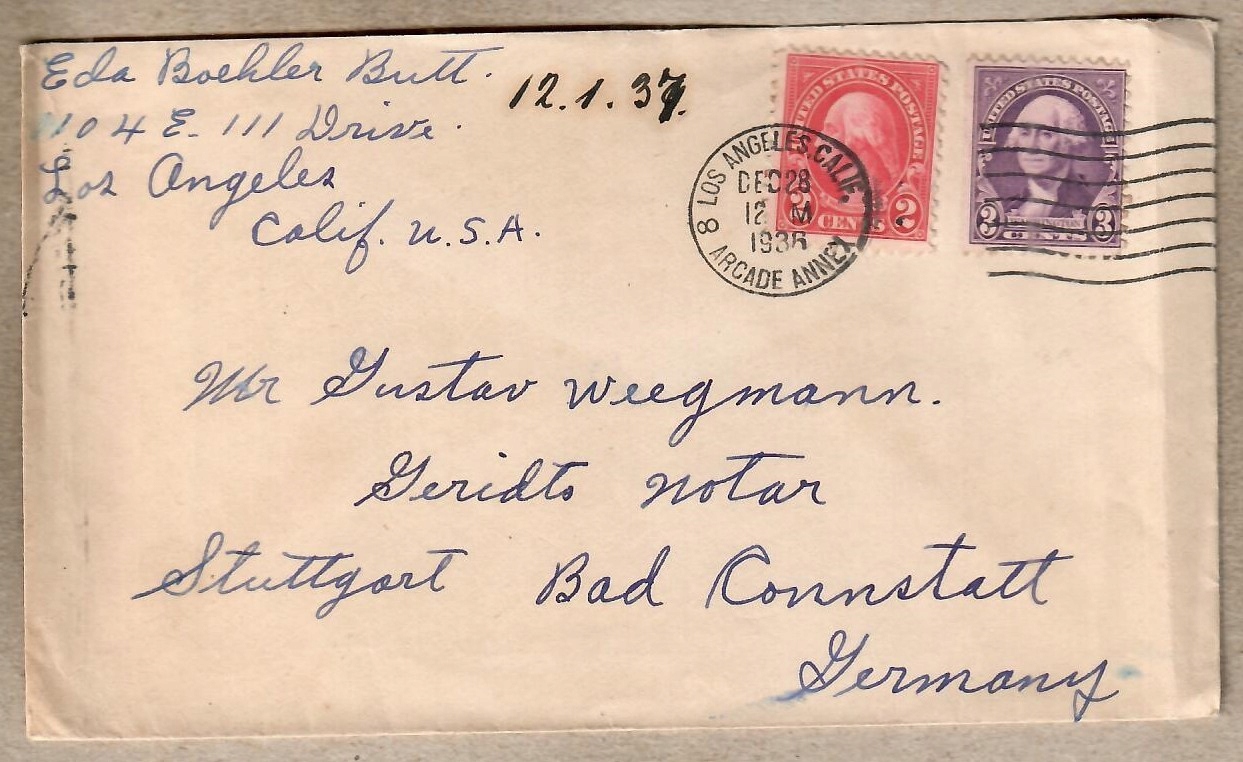 Eda Boehler Butt.
1104 E. 111 Drive.
Los Angeles
Calif. U.S.A.
12.1.37.
UNITED STATES POSTAGE
2 CENTS 2
UNITED STATES POSTAGE
WASHINGTON
3 3
LOS ANGELES, CALIF.
DEC 28
12 M
1936
8 ARCADE ANNEX
Mr Gustav Weegmann.
Geridts Notar
Stuttgart Bad Connstatt
Germany